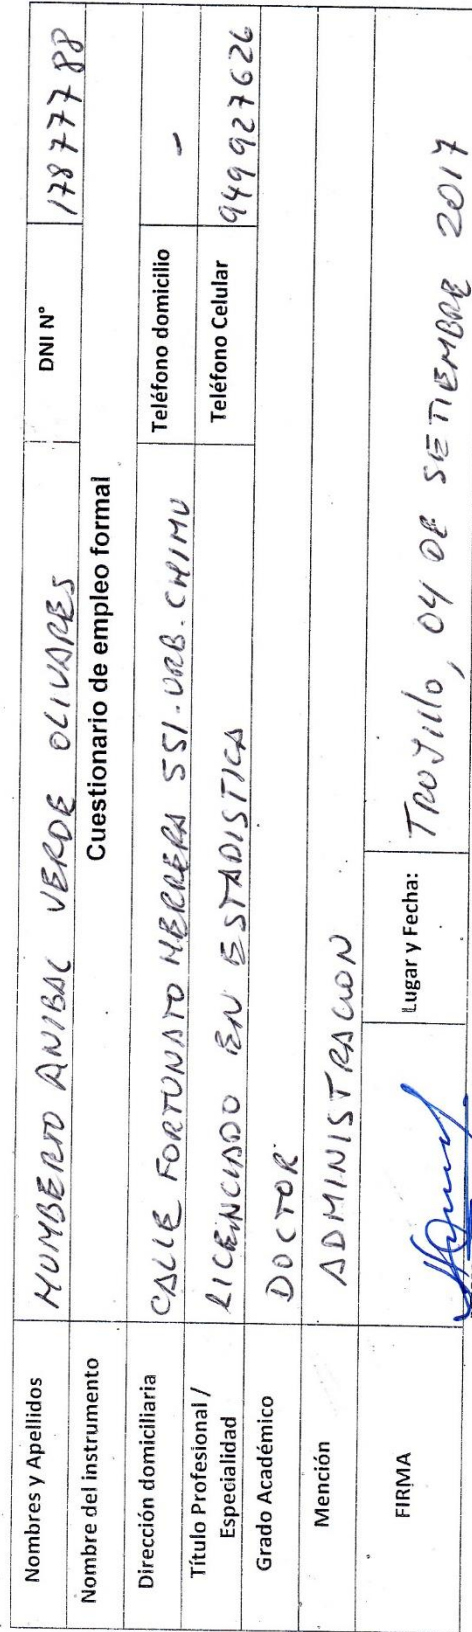 Nombres y Apellidos HUMBERTO ANIBAL VERDE OLIVARES DNI N° 17877788
Nombre del instrumento Cuestionario de empleo formal
Dirección domiciliaria CALLE FORTUNATO HERRERA 551-URB. CHIMU Teléfono domicilio -
Título Profesional / Especialidad LICENCIADO EN ESTADISTICA Teléfono Celular 949927626
Grado Académico DOCTOR
Mención ADMINISTRACION
FIRMA Lugar y Fecha: TRUJILLO, 04 DE SETIEMBRE 2017